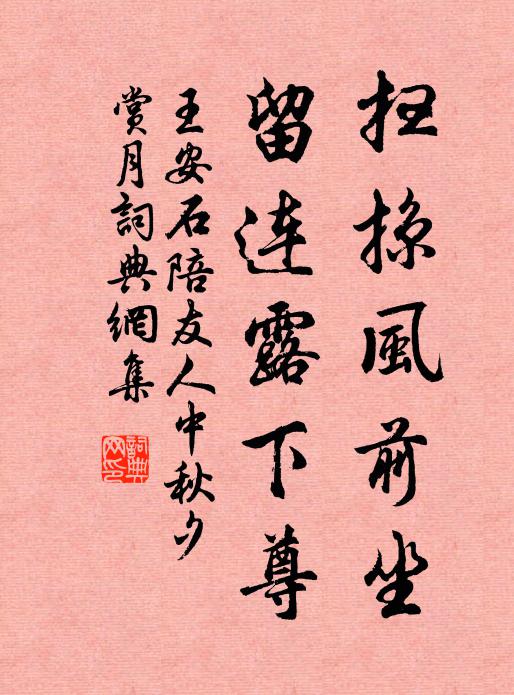 掃掠風前坐
留連露下尊
王安石陪友人中秋夕
賞月詞典網集
詞典网印